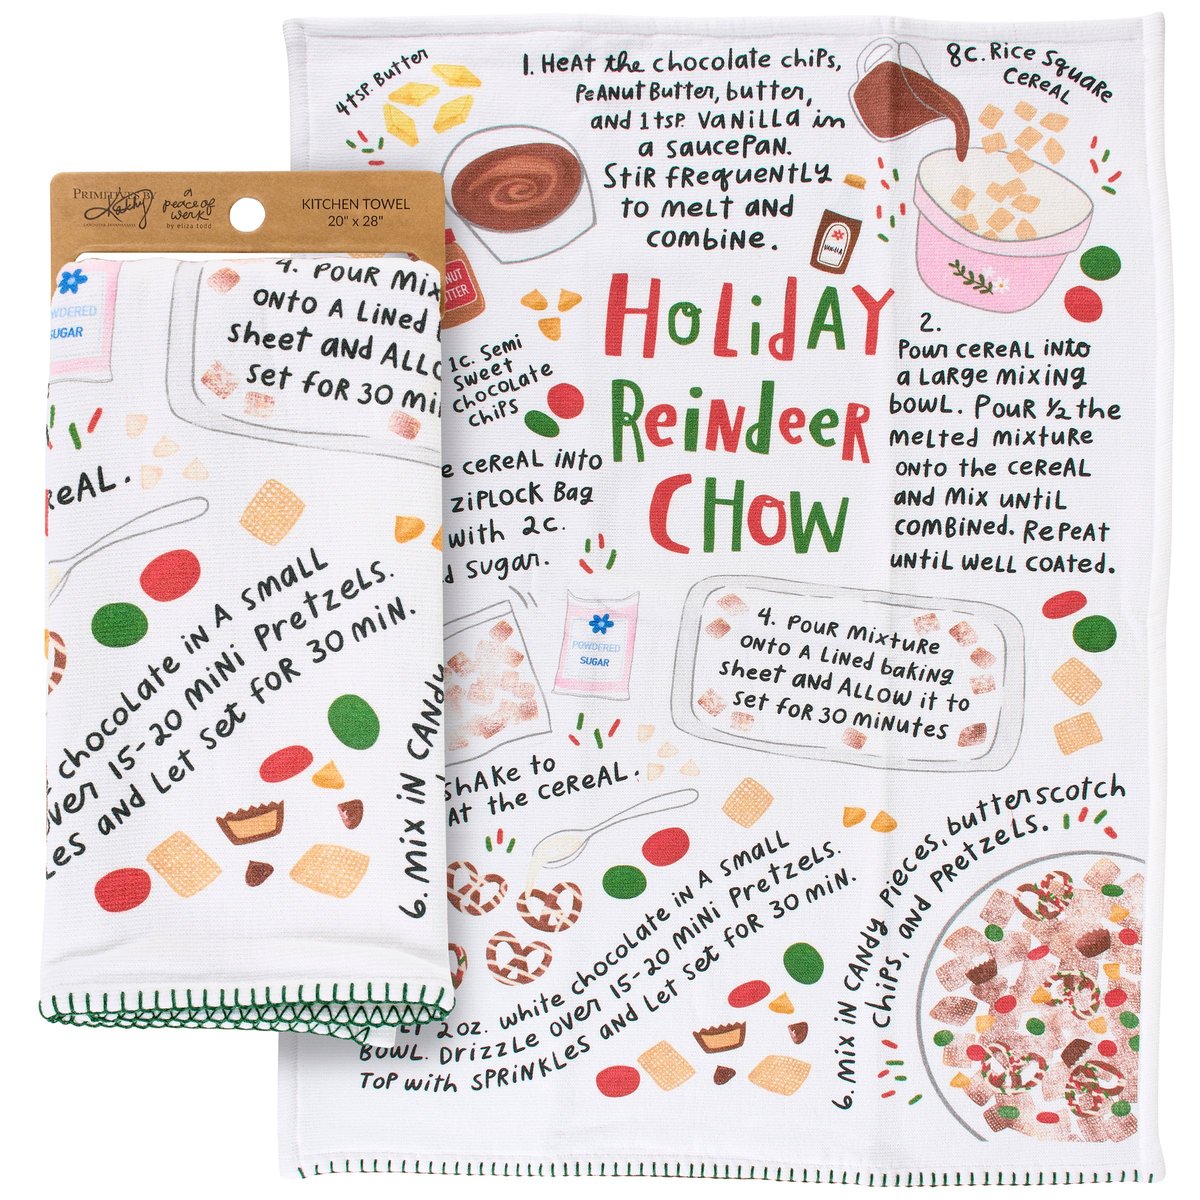 4 tsp. Butter
1. Heat the chocolate chips,
Peanut Butter, butter,
and 1 tsp. vanilla in
a saucepan.
Stir frequently
to melt and
combine.
8c. Rice Square
Cereal
VANILLA
NUT
TTER
1c. Semi
Sweet
Chocolate
Chips
Holiday
Reindeer
Chow
2.
Pour cereal into
a large mixing
bowl. Pour ½ the
melted mixture
onto the cereal
and mix until
combined. Repeat
until well coated.
e cereal into
ziplock Bag
with 2c.
d sugar.
POWDERED
SUGAR
shake to
at the cereal.
4. Pour mixture
onto a lined baking
sheet and allow it to
set for 30 minutes
2 oz. white chocolate in a small
bowl. Drizzle over 15-20 mini pretzels.
Top with sprinkles and let set for 30 min.
6. Mix in candy pieces, butterscotch
chips, and pretzels.
PRIMITIVES BY
Kathy
a
peace of
work
by eliza todd
KITCHEN TOWEL
20" x 28"
WDERED
SUGAR
4. Pour mix
onto a lined b
sheet and allo
set for 30 mi
real.
chocolate in a small
over 15-20 mini pretzels.
les and let set for 30 min.
6. Mix in candy